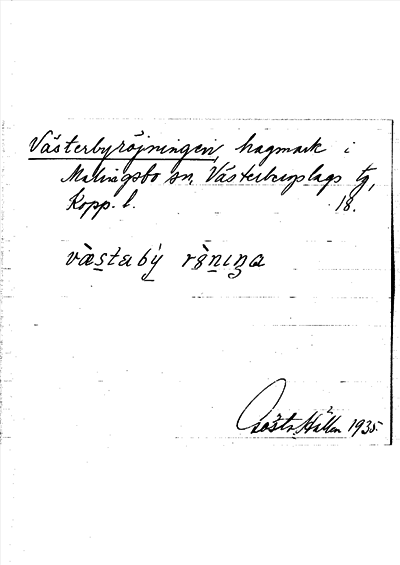 Västerbyröjningen, hagmark i
Malingsbo sn, Västerbergslags tg,
Kopp. l. 18.
væstabý rønɩŋa
Gösta Hallén 1935.